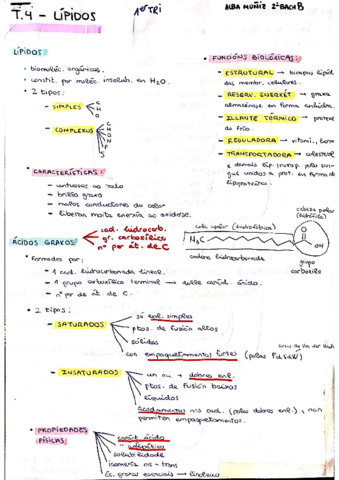 T.4 - LÍPIDOS
1º TRI
ALBA MUÑIZ 2º BACH B
LÍPIDOS
· bioméléc. orgánicas.
· constit. por moléc. insolub. en H2O.
· 2 tipos:
- SIMPLES
C
H
O
- COMPLEXOS
C
H
O
N
P
S
· CARACTERÍSTICAS:
- untuosos ao tacto
- brillo graxo
- malos conductores da calor
- liberan moita enerxía ao oxidarse.
· FUNCIÓNS BIOLÓXICAS:
- ESTRUTURAL → bicapas lipíd.
das membr. celulares.
- RESERV. ENERXÉT. → graxa
almacénase en forma anhidra.
- ILLANTE TÉRMICO → protexe
do frío.
- REGULADORA → vitami.,
- TRANSPORTADORA → colesterol
e demais líp. transp. polo san-
gue unidos a prot. en forma de
lipoproteínas.
ÁCIDOS GRAXOS
cad. hidrocarb.
gr. carboxílico
nº par át. de C
cola apolar (hidrófoba)
cabeza polar
(hidrófila)
H3C
O
OH
cadena hidrocarbonada
grupo
carboxilo
· formados por:
- 1 cad. hidrocarbonada lineal.
- 1 grupo carboxílico terminal → dálle caráct. ácido.
- nº par de át. de C.
· 2 tipos:
- SATURADOS
só enl. simples
ptos. de fusión altos
sólidos
con empaquetamentos fortes (polas FvdW)
forzas de Van der Waals
- INSATURADOS
un ou + dobres enl.
ptos. de fusión baixos
líquidos
acodamentos na cad. (polos dobres enl.), non
permiten empaquetamentos.
· PROPIEDADES
FÍSICAS
caráct. ácido
" anfipático
solubilidade
isomería cis-trans
Ác. graxos esenciais → linoleico